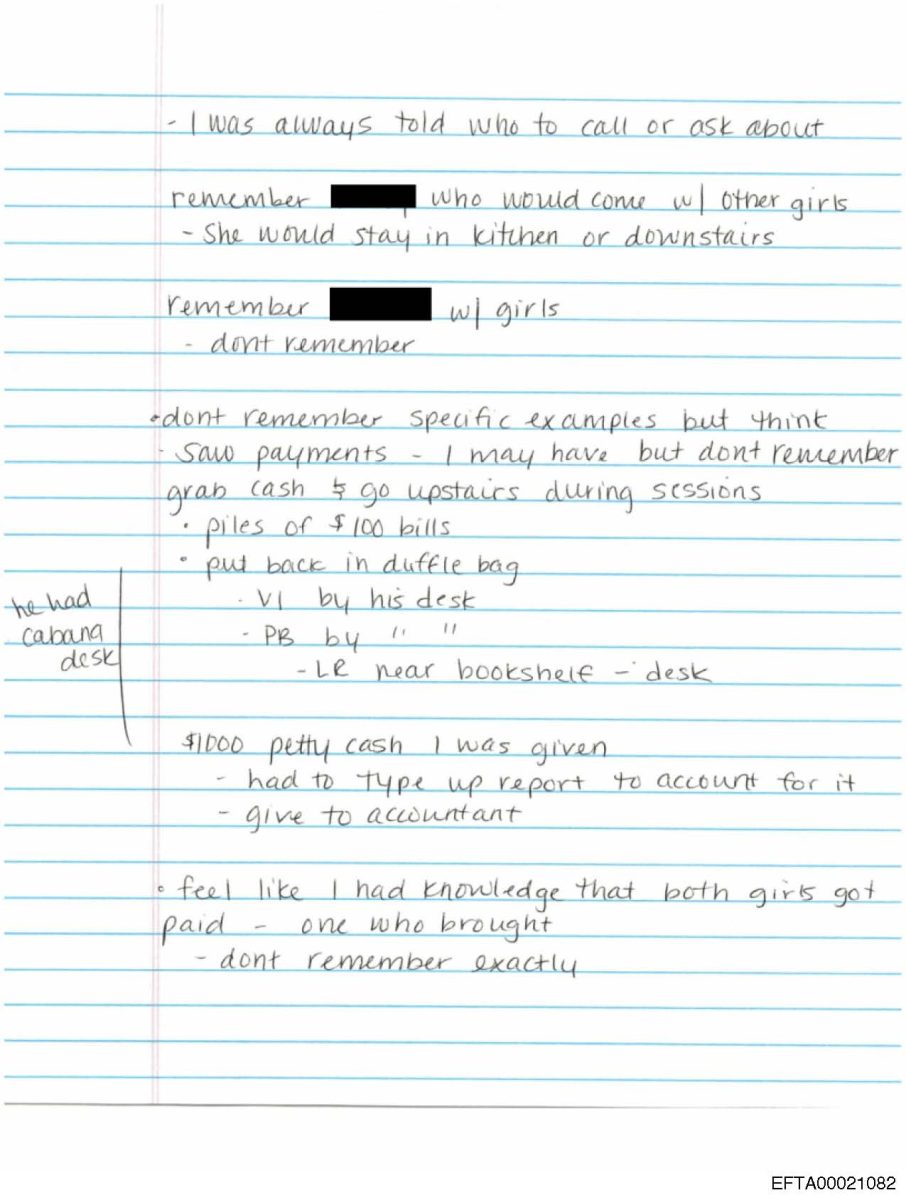 - I was always told who to call or ask about
remember who would come w/ other girls
- She would stay in kitchen or downstairs
remember w/ girls
- dont remember
• dont remember specific examples but think
· saw payments - I may have but dont remember
grab cash & go upstairs during sessions
• piles of $100 bills
• put back in duffle bag
- VI by his desk
- PB by " "
- LR near bookshelf - desk
he had
cabana
desk
$1000 petty cash I was given
- had to type up report to account for it
- give to accountant
• feel like I had knowledge that both girls got
paid - one who brought
- dont remember exactly
EFTA00021082